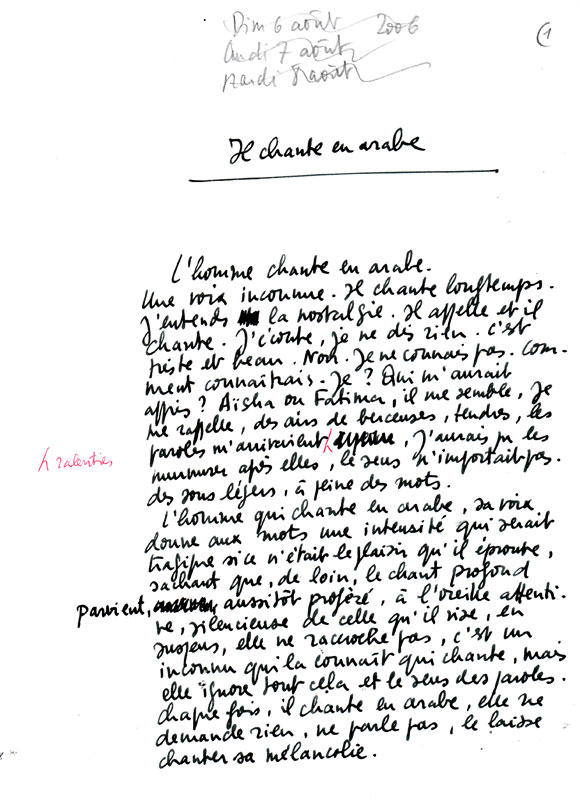 Dim 6 août 2006
Lundi 7 août
Mardi 8 août
1
Il chante en arabe
L'homme chante en arabe.
Une voix inconnue. Il chante longtemps.
J'entends la nostalgie. Il appelle et il
chante. J'écoute, je ne dis rien. C'est
triste et beau. Non. Je ne connais pas. Com-
ment connaîtrais-je ? Qui m'aurait
appris ? Aïsha ou Fatima, il me semble, je
me rappelle, des airs de berceuses, tendres, les
paroles m'arrivaient, j'aurais pu les
ralenties
murmurer après elles, le sens n'importait pas.
des sons légers, à peine des mots.
L'homme qui chante en arabe, sa voix
donne aux mots une intensité qui serait
tragique si ce n'était le plaisir qu'il éprouve,
sachant que, de loin, le chant profond
parvient, aussitôt proféré, à l'oreille attenti-
ve, silencieuse de celle qu'il vise, en
suspens, elle ne raccroche pas, c'est un
inconnu qui la connaît qui chante, mais
elle ignore tout cela et le sens des paroles.
chaque fois, il chante en arabe, elle ne
demande rien, ne parle pas, le laisse
chanter sa mélancolie.